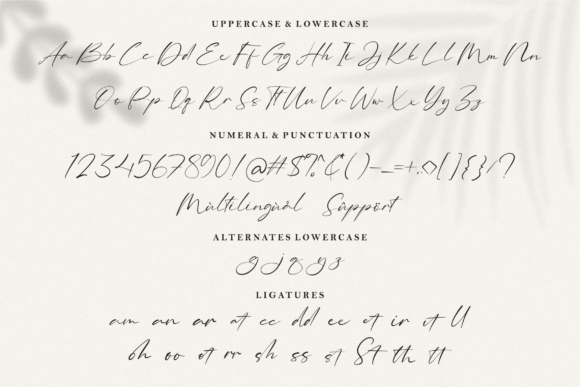 UPPERCASE & LOWERCASE
Aa Bb Cc Dd Ee Ff Gg Hh Ii Jj Kk Ll Mm Nn
Oo Pp Qq Rr Ss Tt Uu Vv Ww Xx Yy Zz
NUMERAL & PUNCTUATION
1234567890!@#$%¢()-_=+.<>[]{}/?
Mùltilingüâl Süppört
ALTERNATES LOWERCASE
g j q y z
LIGATURES
am an ar at cc dd ee et ir it ll
oh oo ot rr sh ss st St th tt